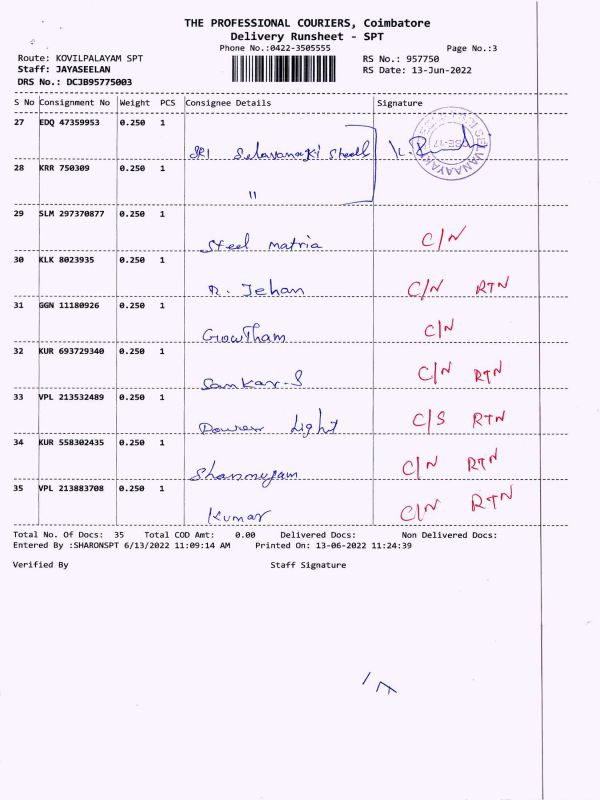 THE PROFESSIONAL COURIERS, Coimbatore
Delivery Runsheet - SPT
Phone No.:0422-3505555 Page No.:3
Route: KOVILPALAYAM SPT RS No.: 957750
Staff: JAYASEELAN RS Date: 13-Jun-2022
DRS No.: DCJB95775003
S No Consignment No Weight PCS Consignee Details Signature
27 EDQ 47359953 0.250 1
SRI Selavanayki Steels
28 KRR 750309 0.250 1
"
29 SLM 297370877 0.250 1
Steel matria C/N
30 KLK 8023935 0.250 1
R. Jehan C/N RTN
31 GGN 11180926 0.250 1
GowTham C/N
32 KUR 693729340 0.250 1
Sankar.S C/N RTN
33 VPL 213532489 0.250 1
Light C/S RTN
34 KUR 558302435 0.250 1
Shanmugam C/N RTN
35 VPL 213883708 0.250 1
Kumar C/N RTN
Total No. Of Docs: 35 Total COD Amt: 0.00 Delivered Docs: Non Delivered Docs:
Entered By :SHARONSPT 6/13/2022 11:09:14 AM Printed On: 13-06-2022 11:24:39
Verified By Staff Signature